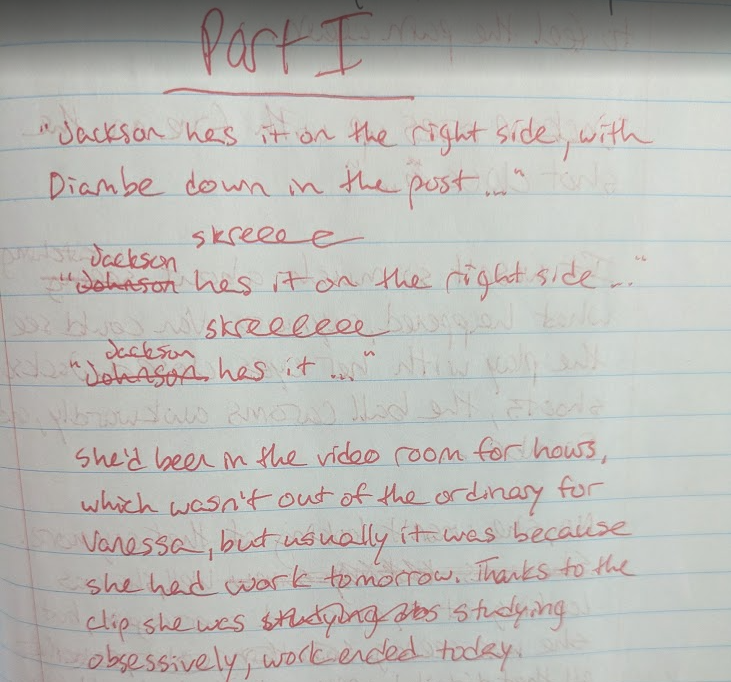 Part I
"Jackson has it on the right side, with
Diambe down in the post..."
skreeee
Jackson
"Johnson has it on the right side..."
skreeeeee
Jackson
"Johnson has it..."
She'd been in the video room for hours,
which wasn't out of the ordinary for
Vanessa, but usually it was because
she had work tomorrow. Thanks to the
clip she was studying obs studying
obsessively, work ended today.